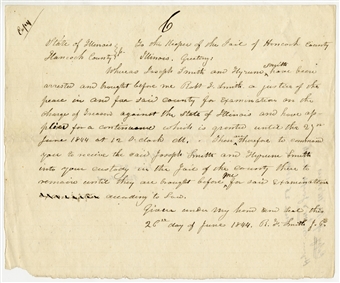 6
State of Illinois } To the Keeper of the Jail of Hancock County
Hancock County } ss. Illinois, Greeting:
Whereas Joseph Smith and Hyrum Smith have been
arrested and brought before me Robt F. Smith a justice of the
peace in and for said county for Examination on the
charge of treason against the State of Illinois and have ap-
plied for a continuance which is granted until the 27th
June 1844 at 12 o'clock M. These are therefore to command
you to receive the said Joseph Smith and Hyrum Smith
into your custody in the Jail of the county there to
remain until they are brought before me for said Examination
according to Law.
Given under my hand and seal this
26th day of June 1844. R. F. Smith J. P.